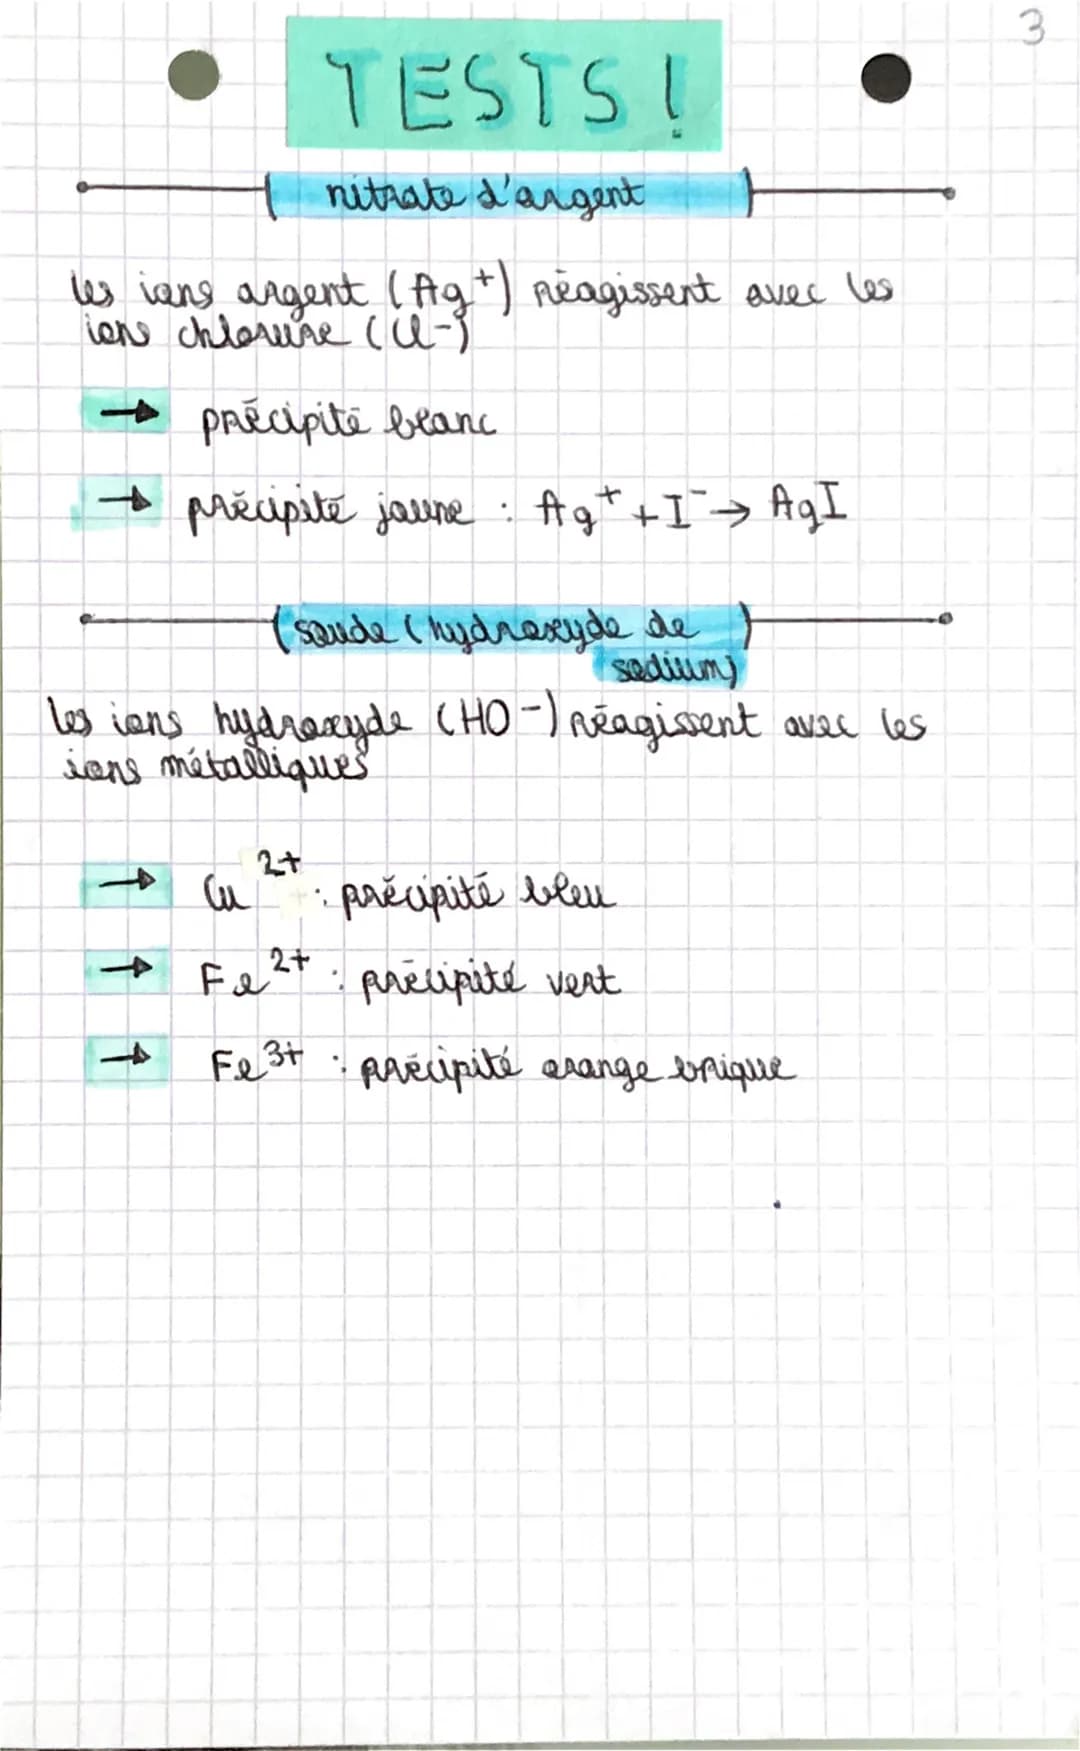 3
TESTS !
nitrate d'argent
les ions argent (Ag⁺) réagissent avec les
ions chlorure (Cl-)
→ précipité blanc
→ précipité jaune : Ag⁺ + I⁻ → AgI
(soude (hydroxyde de
sodium)
les ions hydroxyde (HO-) réagissent avec les
ions métalliques
→ Cu²⁺ : précipité bleu
→ Fe²⁺ : précipité vert
→ Fe³⁺ : précipité orange brique